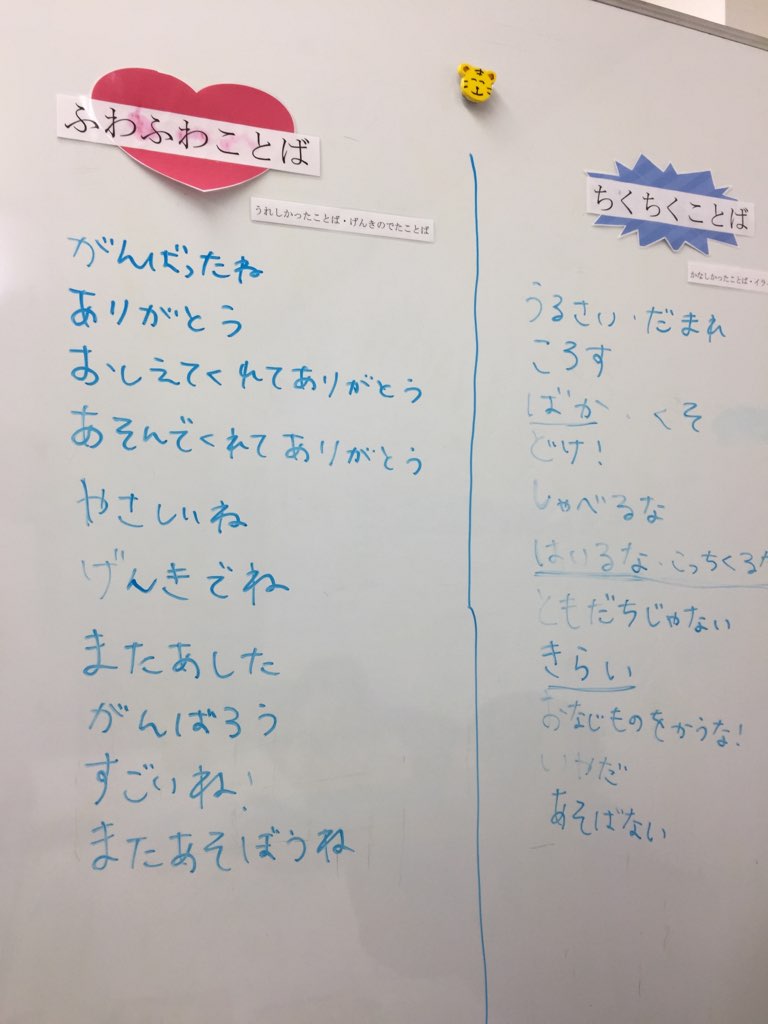 ふわふわことば
うれしかったことば・げんきのでたことば
がんばったね
ありがとう
おしえてくれてありがとう
あそんでくれてありがとう
やさしいね
げんきでね
またあした
がんばろう
すごいね!
またあそぼうね
ちくちくことば
かなしかったことば・イラ
うるさい・だまれ
ころす
ばか・くそ
どけ!
しゃべるな
はいるな・こっちくるな
ともだちじゃない
きらい
おなじものをかうな!
いやだ
あそばない